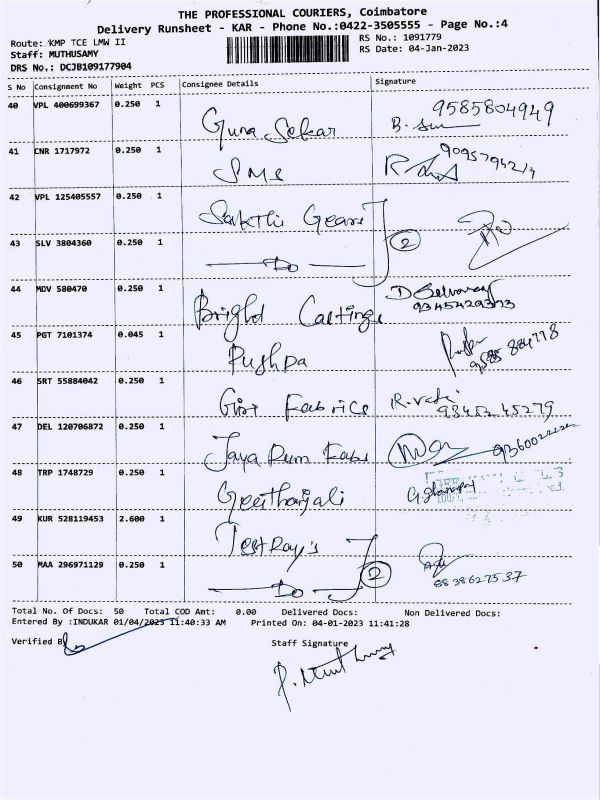 THE PROFESSIONAL COURIERS, Coimbatore
Delivery Runsheet - KAR - Phone No.:0422-3505555 - Page No.:4
Route: KMP TCE LMW II
RS No.: 1091779
Staff: MUTHUSAMY
RS Date: 04-Jan-2023
DRS No.: DCJB109177904
S No Consignment No Weight PCS Consignee Details Signature
40 VPL 400699367 0.250 1 Guna Sekar 9585804949
41 CNR 1717972 0.250 1 SMS
42 VPL 125405557 0.250 1 Sakthi Gears
2
43 SLV 3804360 0.250 1 Do
44 MDV 580470 0.250 1 Bright Castings D Selvaraj
45 PGT 7101374 0.045 1 Pushpa
46 SRT 55884042 0.250 1 Giri Fabrics 98452 45279
47 DEL 120706872 0.250 1 Jaya Ram Fabs
48 TRP 1748729 0.250 1 Geethanjali
49 KUR 528119453 2.600 1
50 MAA 296971129 0.250 1 Do 2
8838627537
Total No. Of Docs: 50 Total COD Amt: 0.00 Delivered Docs: Non Delivered Docs:
Entered By :INDUKAR 01/04/2023 11:40:33 AM Printed On: 04-01-2023 11:41:28
Verified By
Staff Signature
P. Muthusamy